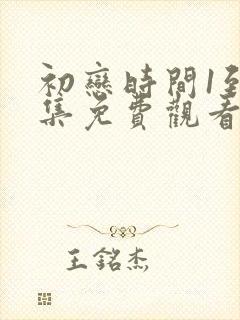 初戀時間1至
集免費觀看
王銘杰